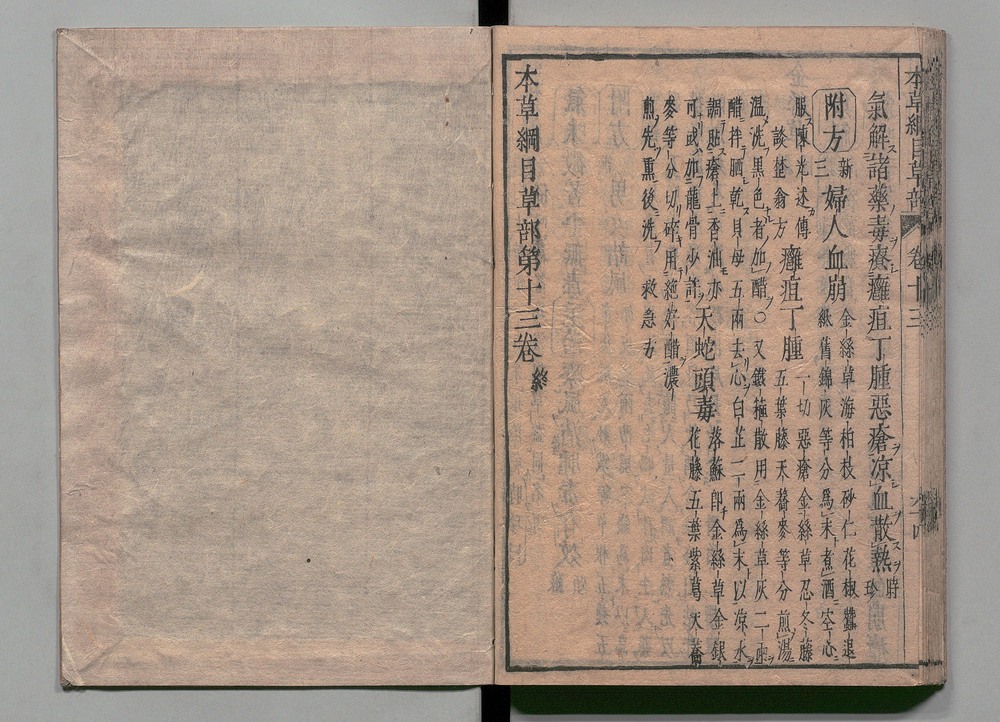 氣解諸藥毒療癰疽丁腫惡瘡凉血散熱時珍
附方新三婦人血崩金絲草海柏枝砂仁花椒蠶退紙舊錦灰等分爲末煮酒空心
服陳光述傳談埜翁方癰疽丁腫一切惡瘡金絲草忍冬藤五葉藤天蕎麥等分煎湯
温洗黒色者加醋○又鐵箍散用金絲草灰二兩
醋拌晒乾貝母五兩去心白芷二兩爲末以凉水
調貼瘡上香油亦可或加龍骨少許天蛇頭毒落蘇即金絲草金銀花藤五葉紫葛天蕎
麥等分切碎用絶好醋濃
煎先熏後洗救急方
本草綱目草部第十三卷終
本草綱目草部 卷十三